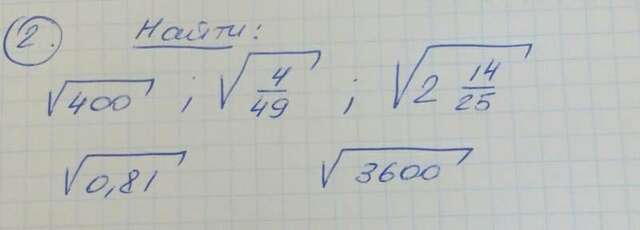 2. Найти:
√400 ; √4/49 ; √2 14/25
√0,81 √3600